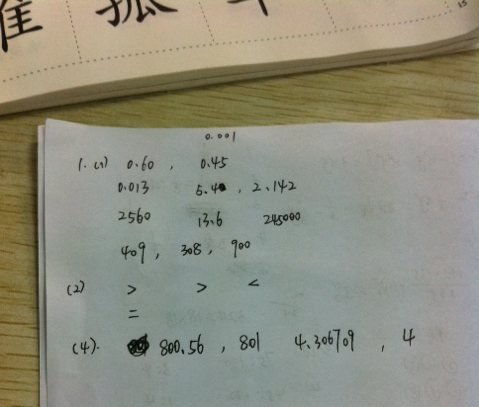 15
0.001
1. (1) 0.60, 0.45
0.013 5.4, 2.142
2560 13.6 245000
409, 308, 900
(2) > > <
=
(4). 800.56, 801 4.306709, 4